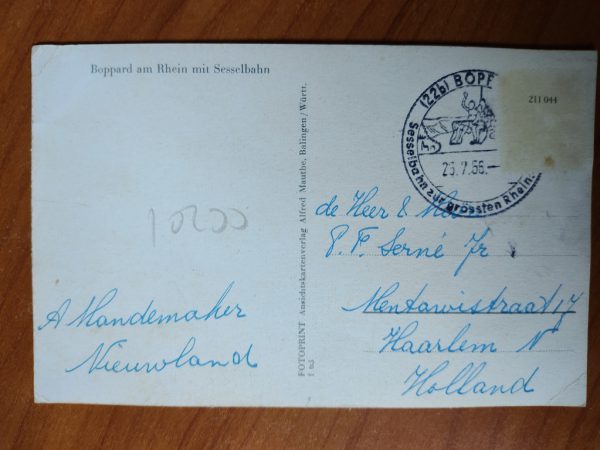 Boppard am Rhein mit Sesselbahn
(22b) BOPP
Sesselbahn zur grössten Rhein
25.7.56.-
211 044
FOTOPRINT Ansichtskartenverlag Alfred Mauthe, Balingen/Württ.
de Heer & Mev
P. F. Serné Jr
Mentawistraat 17
Haarlem N
Holland
A Mandemaker
Nieuwland